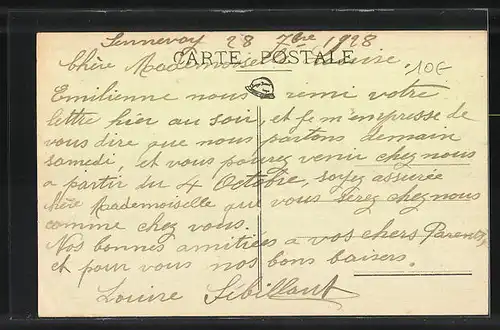 Sennevoy 28 7bre 1928
CARTE POSTALE
Chère Mademoiselle Louise,
10€
Emilienne nous a remi votre
lettre hier au soir, et je m'empresse de
vous dire que nous partons demain
samedi, et vous pourez venir chez nous
a partir du 4 Octobre, soyez assurée
chère Mademoiselle que vous serez chez nous
comme chez vous.
Nos bonnes amitiées a vos chers Parents,
et pour vous nos bons baisers.
Louise Sibillant